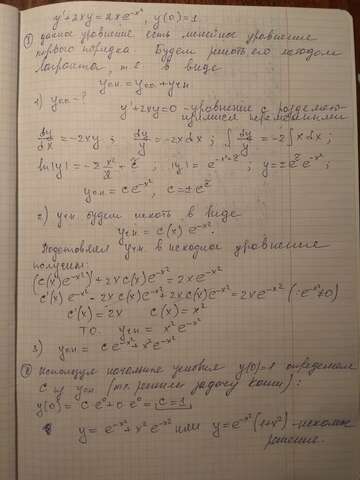 y'+2xy = 2xe^{-x²}, y(0)=1.
① данное уравнение есть линейное уравнение
первого порядка. Будем решать его методом
Лагранжа, т.е. в виде
yон = yоо + yчн
1) yоо - ?
y'+2xy=0 - уравнение с разделяю-
щимися переменными
dy/dx = -2xy ; dy/y = -2x dx ; ∫ dy/y = -2 ∫ x dx ;
ln|y| = -2 x²/2 - c̃ ; |y| = e^{-x²-c̃} ; y = ± e^{c̃} e^{-x²} ;
yоо = c e^{-x²}, c = ± e^{c̃}
2) yчн будем искать в виде
yчн = c(x) e^{-x²}.
Подставляя yчн в исходное уравнение
получим:
(c(x)e^{-x²})' + 2x c(x) e^{-x²} = 2x e^{-x²}
c'(x) e^{-x²} - 2x c(x) e^{-x²} + 2x c(x) e^{-x²} = 2x e^{-x²} (: e^{-x²} ≠ 0)
c'(x) = 2x c(x) = x²
т.о. yчн = x² e^{-x²}
3) yон = c e^{-x²} + x² e^{-x²}
② Используя начальные условия y(0)=1 определяем
C из yон (т.к. решаем задачу Коши):
y(0) = C e⁰ + 0 e⁰ = 1 C = 1
y = e^{-x²} + x² e^{-x²} или y = e^{-x²} (1+x²) - искомое
решение.